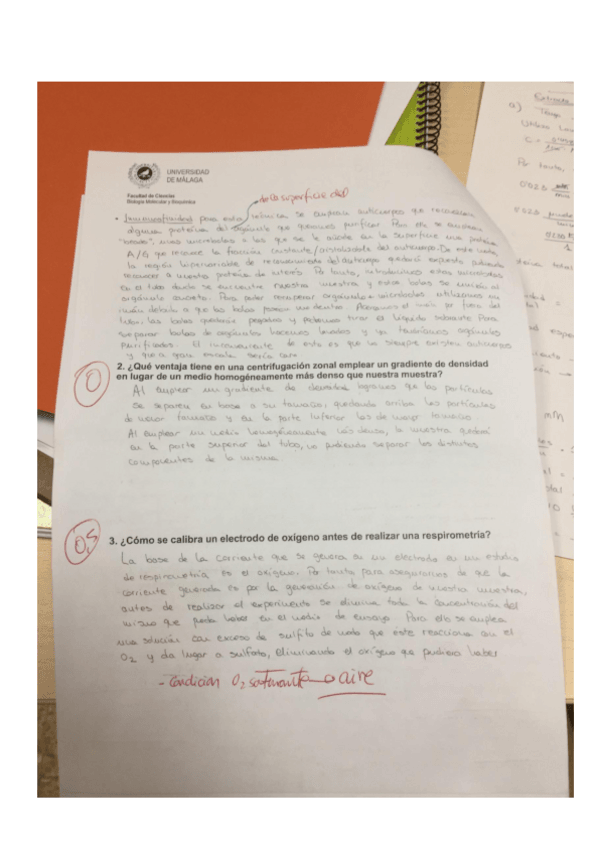 UNIVERSIDAD
DE MÁLAGA
Facultad de Ciencias
Biología Molecular y Bioquímica
en la superficie del
• Inmunoafinidad para esta técnica se emplean anticuerpos que reconocen
alguna proteína del orgánulo que queremos purificar. Para ello se emplean
"beads", unas microbolas a las que se le añade en la superficie una proteína
A/G que reconoce la fracción constante/cristalizable del anticuerpo. De este modo,
la región hipervariable de reconocimiento del anticuerpo quedará expuesta pudiendo
reconocer a nuestra proteína de interés. Por tanto, introducimos estas microbolas
en el tubo donde se encuentre nuestra muestra y estas bolas se unirán al
orgánulo concreto. Para poder recuperar orgánulo + microbolas utilizamos un
imán debido a que las bolas poseen un dentro. Acercamos el imán por fuera del
tubo, las bolas quedarán pegadas y podemos tirar el líquido sobrante. Para
separar bolas de orgánulos hacemos lavados y ya tendríamos orgánulos
purificados. El inconveniente de esto es que no siempre existen anticuerpos
y que a gran escala sería caro
0
2. ¿Qué ventaja tiene en una centrifugación zonal emplear un gradiente de densidad
en lugar de un medio homogéneamente más denso que nuestra muestra?
Al emplear un gradiente de densidad logramos que las partículas
se separen en base a su tamaño, quedando arriba las partículas
de menor tamaño y en la parte inferior las de mayor tamaño
Al emplear un medio homogéneamente más denso, la muestra quedará
en la parte superior del tubo, no pudiendo separar los distintos
componentes de la misma.
0,5
3. ¿Cómo se calibra un electrodo de oxígeno antes de realizar una respirometría?
La base de la corriente que se genera en un electrodo en un estudio
de respirometría es el oxígeno. Por tanto para asegurarnos de que la
corriente generada es por la generación de oxígeno de nuestra muestra,
antes de realizar el experimento se elimina toda la concentración del
mismo que pueda haber en el medio de ensayo. Para ello se emplea
una solución con exceso de sulfito de modo que éste reaccione con el
O2 y da lugar a sulfato, eliminando el oxígeno que pudiera haber
- Condición O2 saturante → aire
a)
Por tanto,
0'025
0'025
mM